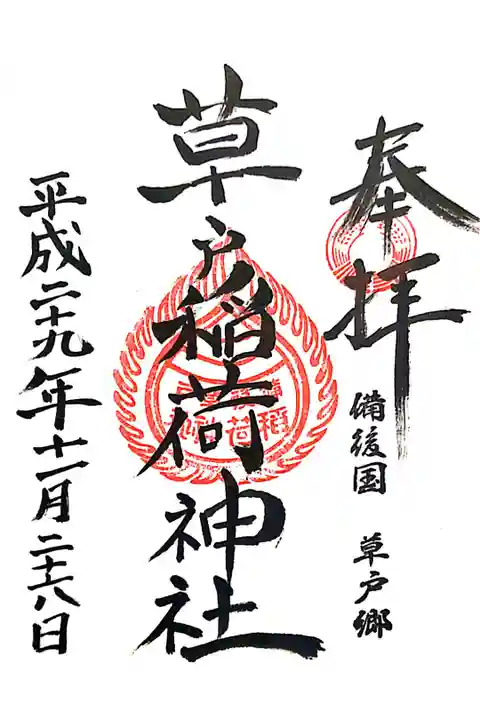 奉拝
備後国 草戸郷
草戸稲荷神社
平成二十九年十一月二十八日